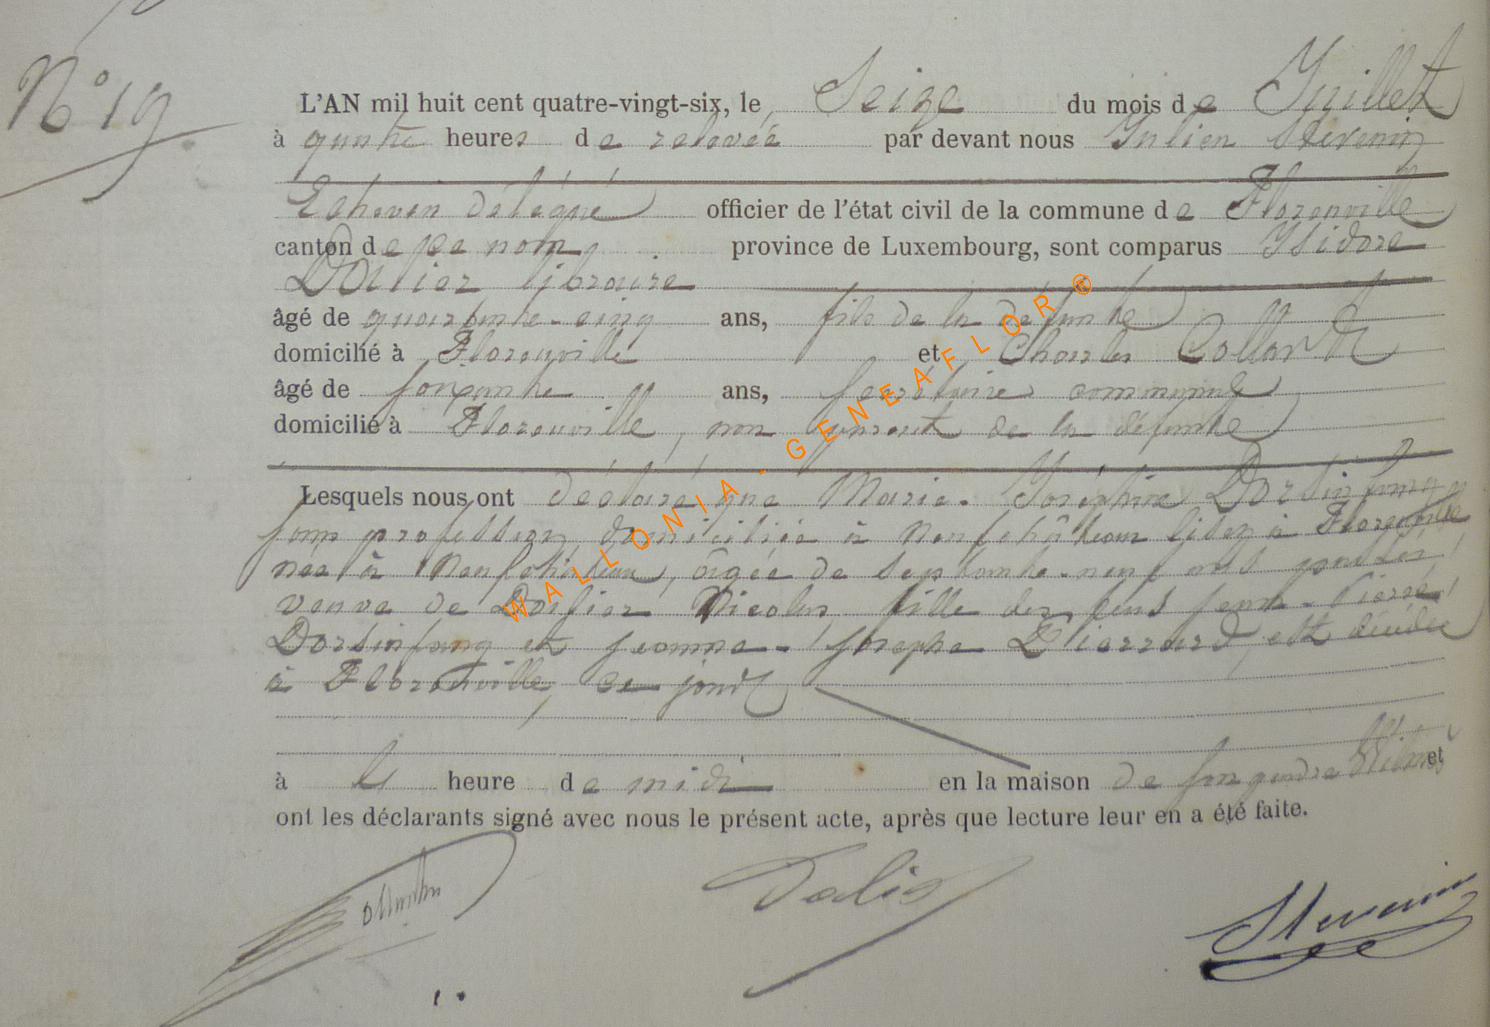 N° 19
L'AN mil huit cent quatre-vingt-six, le Seize du mois de Juillet
à quatre heures de relevée par devant nous Julien Stevenin
Echevin délégué officier de l'état civil de la commune de Florenville
canton de ce nom, province de Luxembourg, sont comparus Isidore
libraire
âgé de quarante-cinq ans, fils de la défunte
domicilié à Florenville et Charles Collard
âgé de soixante ans, secrétaire communal
domicilié à Florenville, non parent de la défunte
Lesquels nous ont déclaré que Marie-Joséphine Dorsinfang
sans profession, domiciliée à Neufchâteau lisez à Florenville
née à Neufchâteau, âgée de septante-neuf ans passés,
veuve de Nicolas, fille des feus Jean-Pierre
Dorsinfang et Jeanne-Josephe Pierrard, est décédée
à Florenville, ce jourd
à heure de midi en la maison de son gendre et
ont les déclarants signé avec nous le présent acte, après que lecture leur en a été faite.
Stevenin
WALLONIA - GENEAFLOR ®